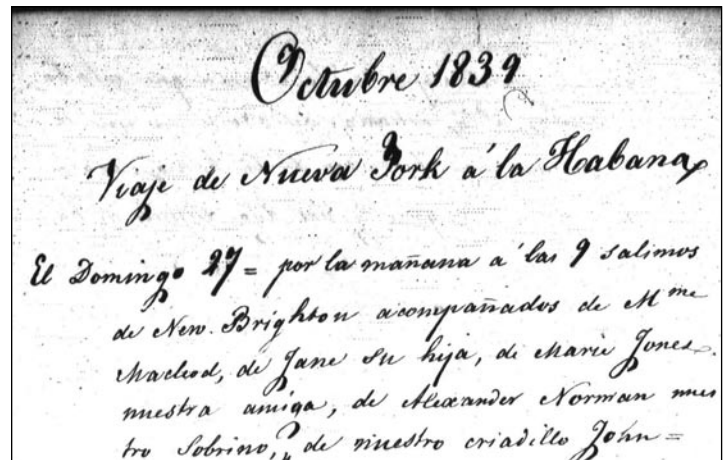 Octubre 1839
Viaje de Nueva York á la Habana,
El Domingo 27 = por la mañana á las 9 salimos
de New. Brighton acompañados de Mme
Macleod, de Jane su hija, de Marie Jones.
nuestra amiga, de Alexander Norman nues
tro Sobrino, y de nuestro criadillo John =